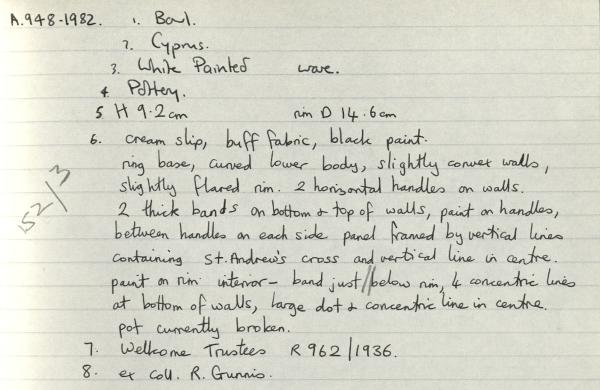 A.948-1982. 1. Bowl.
2. Cyprus.
3. White Painted ware.
4. Pottery.
5 H 9.2cm rim D 14.6cm
6. cream slip, buff fabric, black paint.
ring base, curved lower body, slightly convex walls,
slightly flared rim. 2 horizontal handles on walls.
2 thick bands on bottom & top of walls, paint on handles,
between handles on each side panel framed by vertical lines
containing St. Andrew's cross and vertical line in centre.
paint on rim interior - band just//below rim, 4 concentric lines
at bottom of walls, large dot & concentric line in centre.
pot currently broken.
7. Wellcome Trustees R 962/1936.
8. ex coll. R. Gunnis.
52/3